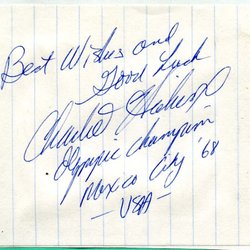 Best Wishes and
Good Luck
Charlie Hickcox
Olympic Champion
Mexico City '68
- USA -